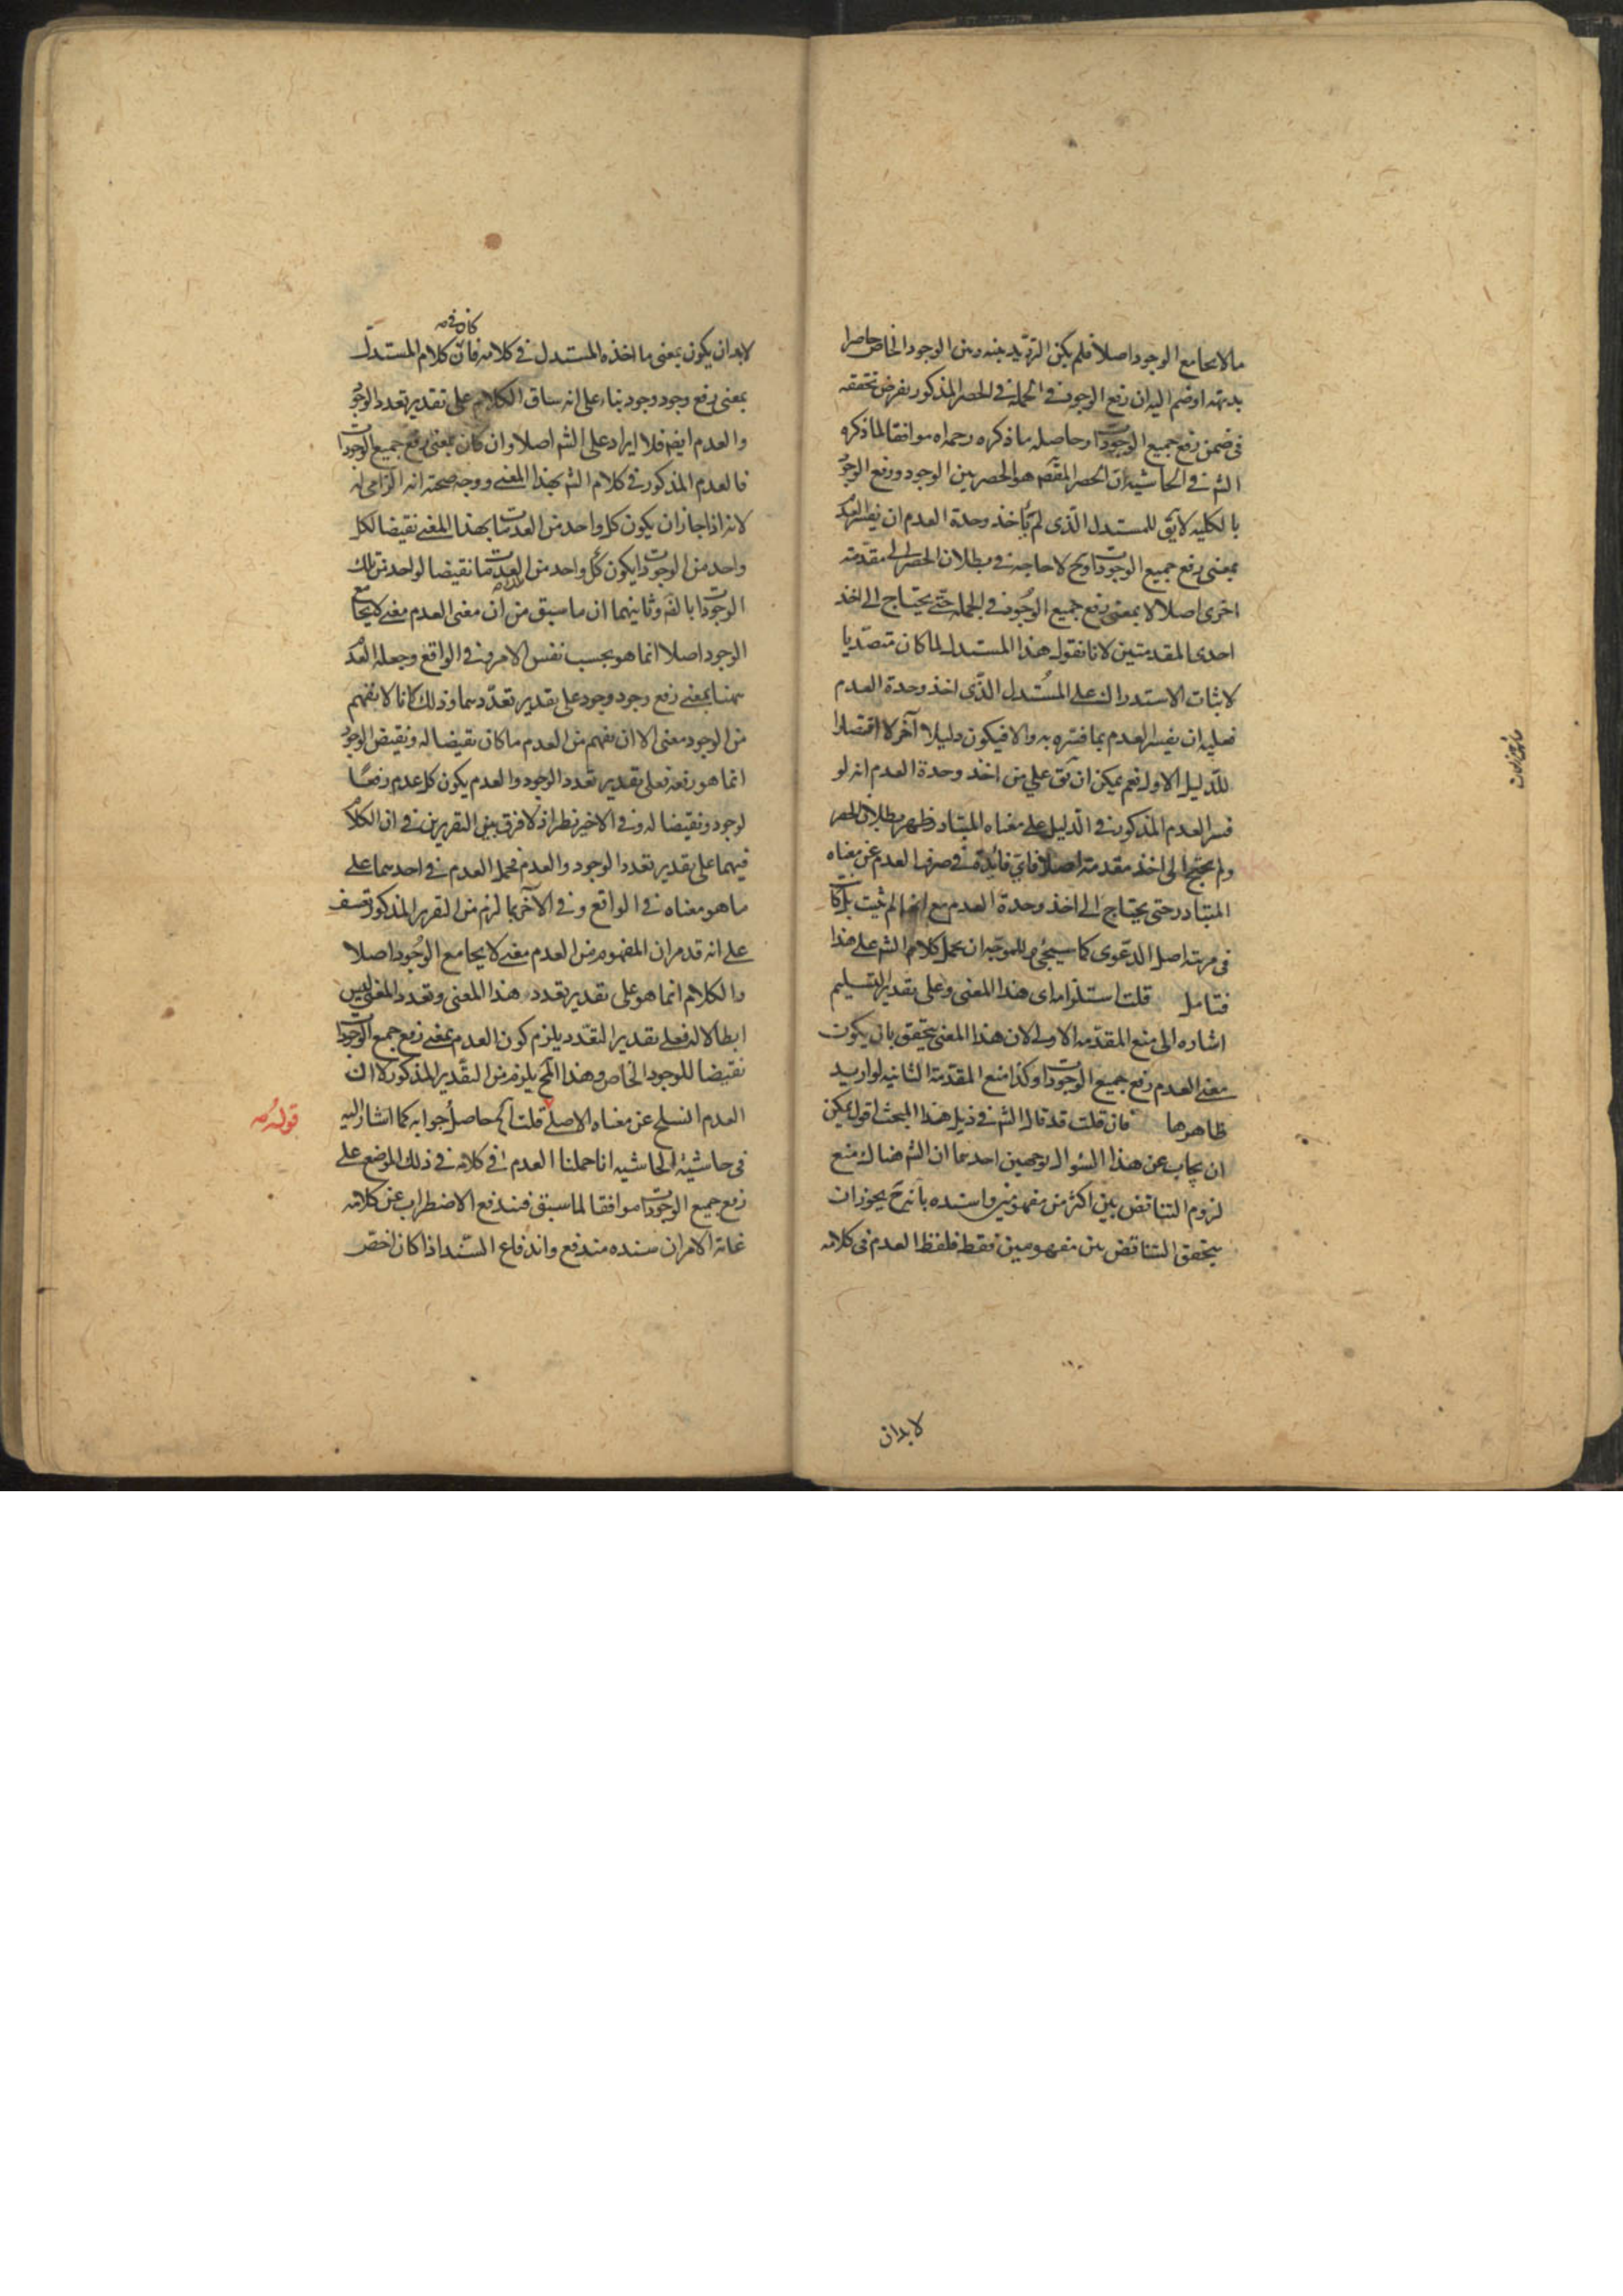 ما لا يجامع الوجود اصلا فلم يكن الترديد بينه وبين الوجود الخاص حاصرا
بديهة او ضم اليه ان رفع الوجود في الجملة في الحصر المذكور يفرض تحققه
في ضمن رفع جميع الوجودات وحاصله ما ذكره رحمه الله موافقا لما ذكره
الش في الحاشية ان الحصر المقصم هو الحصر بين الوجود ورفع الوجود
بالكلية لا يق للمستدل الذي لم يأخذ وحدة العدم ان يفسر العدم
بمعنى رفع جميع الوجودات وح لا حاجة في بطلان الحصر الى مقدمة
اخرى اصلا لا بمعنى رفع جميع الوجود في الجملة حتى يحتاج الى اخذ
احدى المقدمتين لانا نقول هذا المستدل لما كان متصديا
لاثبات الاستدراك على المستدل الذي اخذ وحدة العدم
فعليه ان يفسر العدم بما فسره به والا فيكون دليلا آخر لا اقتصارا
للدليل الاول نعم يمكن ان يق على من اخذ وحدة العدم انه لو
فسر العدم المذكور في الدليل على معناه المتبادر ظهر بطلان الحصر
ولم يحتج الى اخذ مقدمة اصلا فاي فائدة في صرف العدم عن معناه
المتبادر حتى يحتاج الى اخذ وحدة العدم مع انها لم يثبت
في مرتبة اصل الدعوى كما سيجيء وللموجه ان يحمل كلام الش على هذا
فتامل قلت استلزامه اي هذا المعنى وعلى تقدير التسليم
اشارة الى منع المقدمة الاولى لان هذا المعنى يتحقق بان يكون
معنى العدم رفع جميع الوجودات وكذا منع المقدمة الثانية لو اريد
ظاهرها فان قلت قد قال الش في ذيل هذا المبحث اقول يمكن
ان يجاب عن هذا السؤال بوجهين احدهما ان الش هناك منع
لزوم التناقض بين اكثر من مفهومين واسنده بانه ح يجوز ان
يتحقق التناقض بين مفهومين فقط فلفظ العدم في كلامه
لا بد ان
كان في
لا بد ان يكون بمعنى ما اخذه المستدل في كلامه فان كلام المستدل
بمعنى رفع وجود وجود بناء على انه ساق الكلام على تقدير تعدد الوجود
والعدم ايضا فلا ايراد على الش اصلا وان كان بمعنى رفع جميع الوجودات
فالعدم المذكور في كلام الش بهذا المعنى ووجه صحته انه الزامي له
لانه اذا جاز ان يكون كل واحد من العدمات بهذا المعنى نقيضا لكل
واحد من الوجودات يكون كل واحد من العدمات نقيضا لواحد من تلك
الوجودات بالضه وثانيهما ان ما سبق من ان معنى العدم معنى لا يجامع
الوجود اصلا انما هو بحسب نفس الامر وفي الواقع وجعله العدم
ههنا بمعنى رفع وجود وجود على تقدير تعددهما وذلك كانا لا نفهم
من الوجود معنى الا ان نفهم من العدم ما كان نقيضا له ونقيض الوجود
انما هو رفعه فعلى تقدير تعدد الوجود والعدم يكون كل عدم رفعا
لوجود ونقيضا له وفي الاخير نظر اذ لا فرق بين التقريرين في ان الكلام
فيهما على تقدير تعدد الوجود والعدم فحمل العدم في احدهما على
ما هو معناه في الواقع وفي الآخر بما لزم من التقرير المذكور تعسف
على انه قد مر ان المفهوم من العدم معنى لا يجامع الوجود اصلا
والكلام انما هو على تقدير تعدد هذا المعنى وتعدد المعنى ليس
ابطالا له فعلى تقدير التعدد يلزم كون العدم بمعنى رفع جميع الوجودات
نقيضا للوجود الخاص وهذا المح يلزم من التقدير المذكور لا ان
العدم انسلخ عن معناه الاصلي قلت الخ حاصل جوابه كما اشار اليه
قوله
في حاشية الحاشية انا حملنا العدم في كلامه في ذلك الموضع على
رفع جميع الوجودات موافقا لما سبق فيندفع الاضطراب عن كلامه
غاية الامر ان سنده مندفع واندفاع السند اذا كان اخص